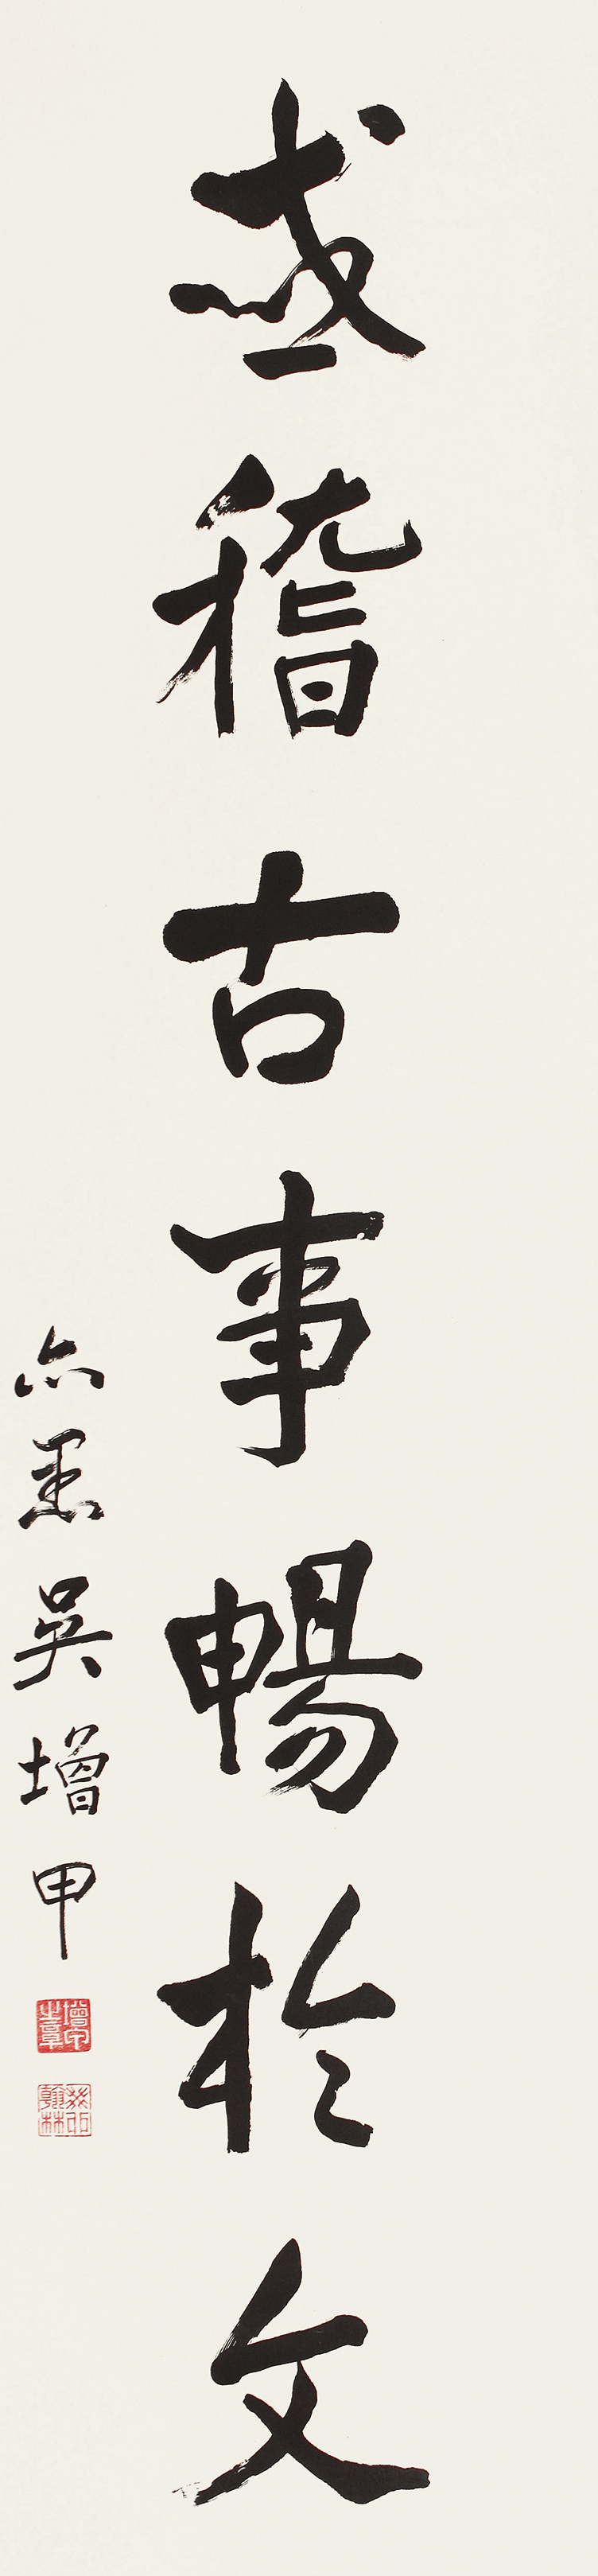 或稽古事暢於文
六愚吳增甲
增甲之章